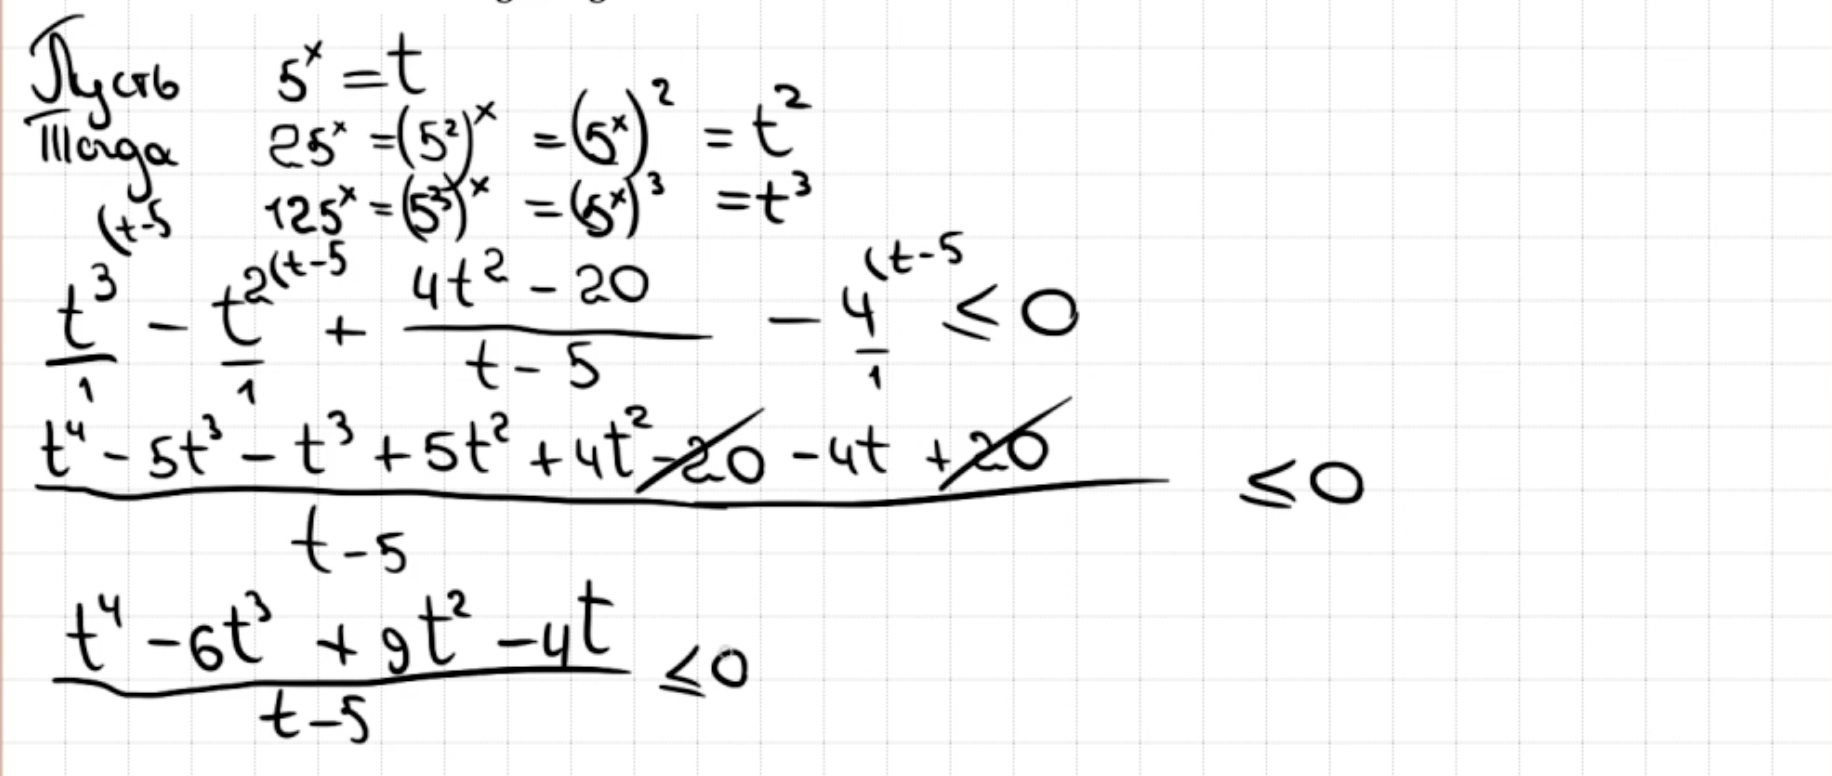 Пусть 5^x = t
Тогда 25^x = (5^2)^x = (5^x)^2 = t^2
125^x = (5^3)^x = (5^x)^3 = t^3
(t-5 (t-5 (t-5
t^3/1 - t^2/1 + (4t^2 - 20)/(t - 5) - 4/1 ≤ 0
(t^4 - 5t^3 - t^3 + 5t^2 + 4t^2 - 20 - 4t + 20)/(t - 5) ≤ 0
(t^4 - 6t^3 + 9t^2 - 4t)/(t - 5) ≤ 0